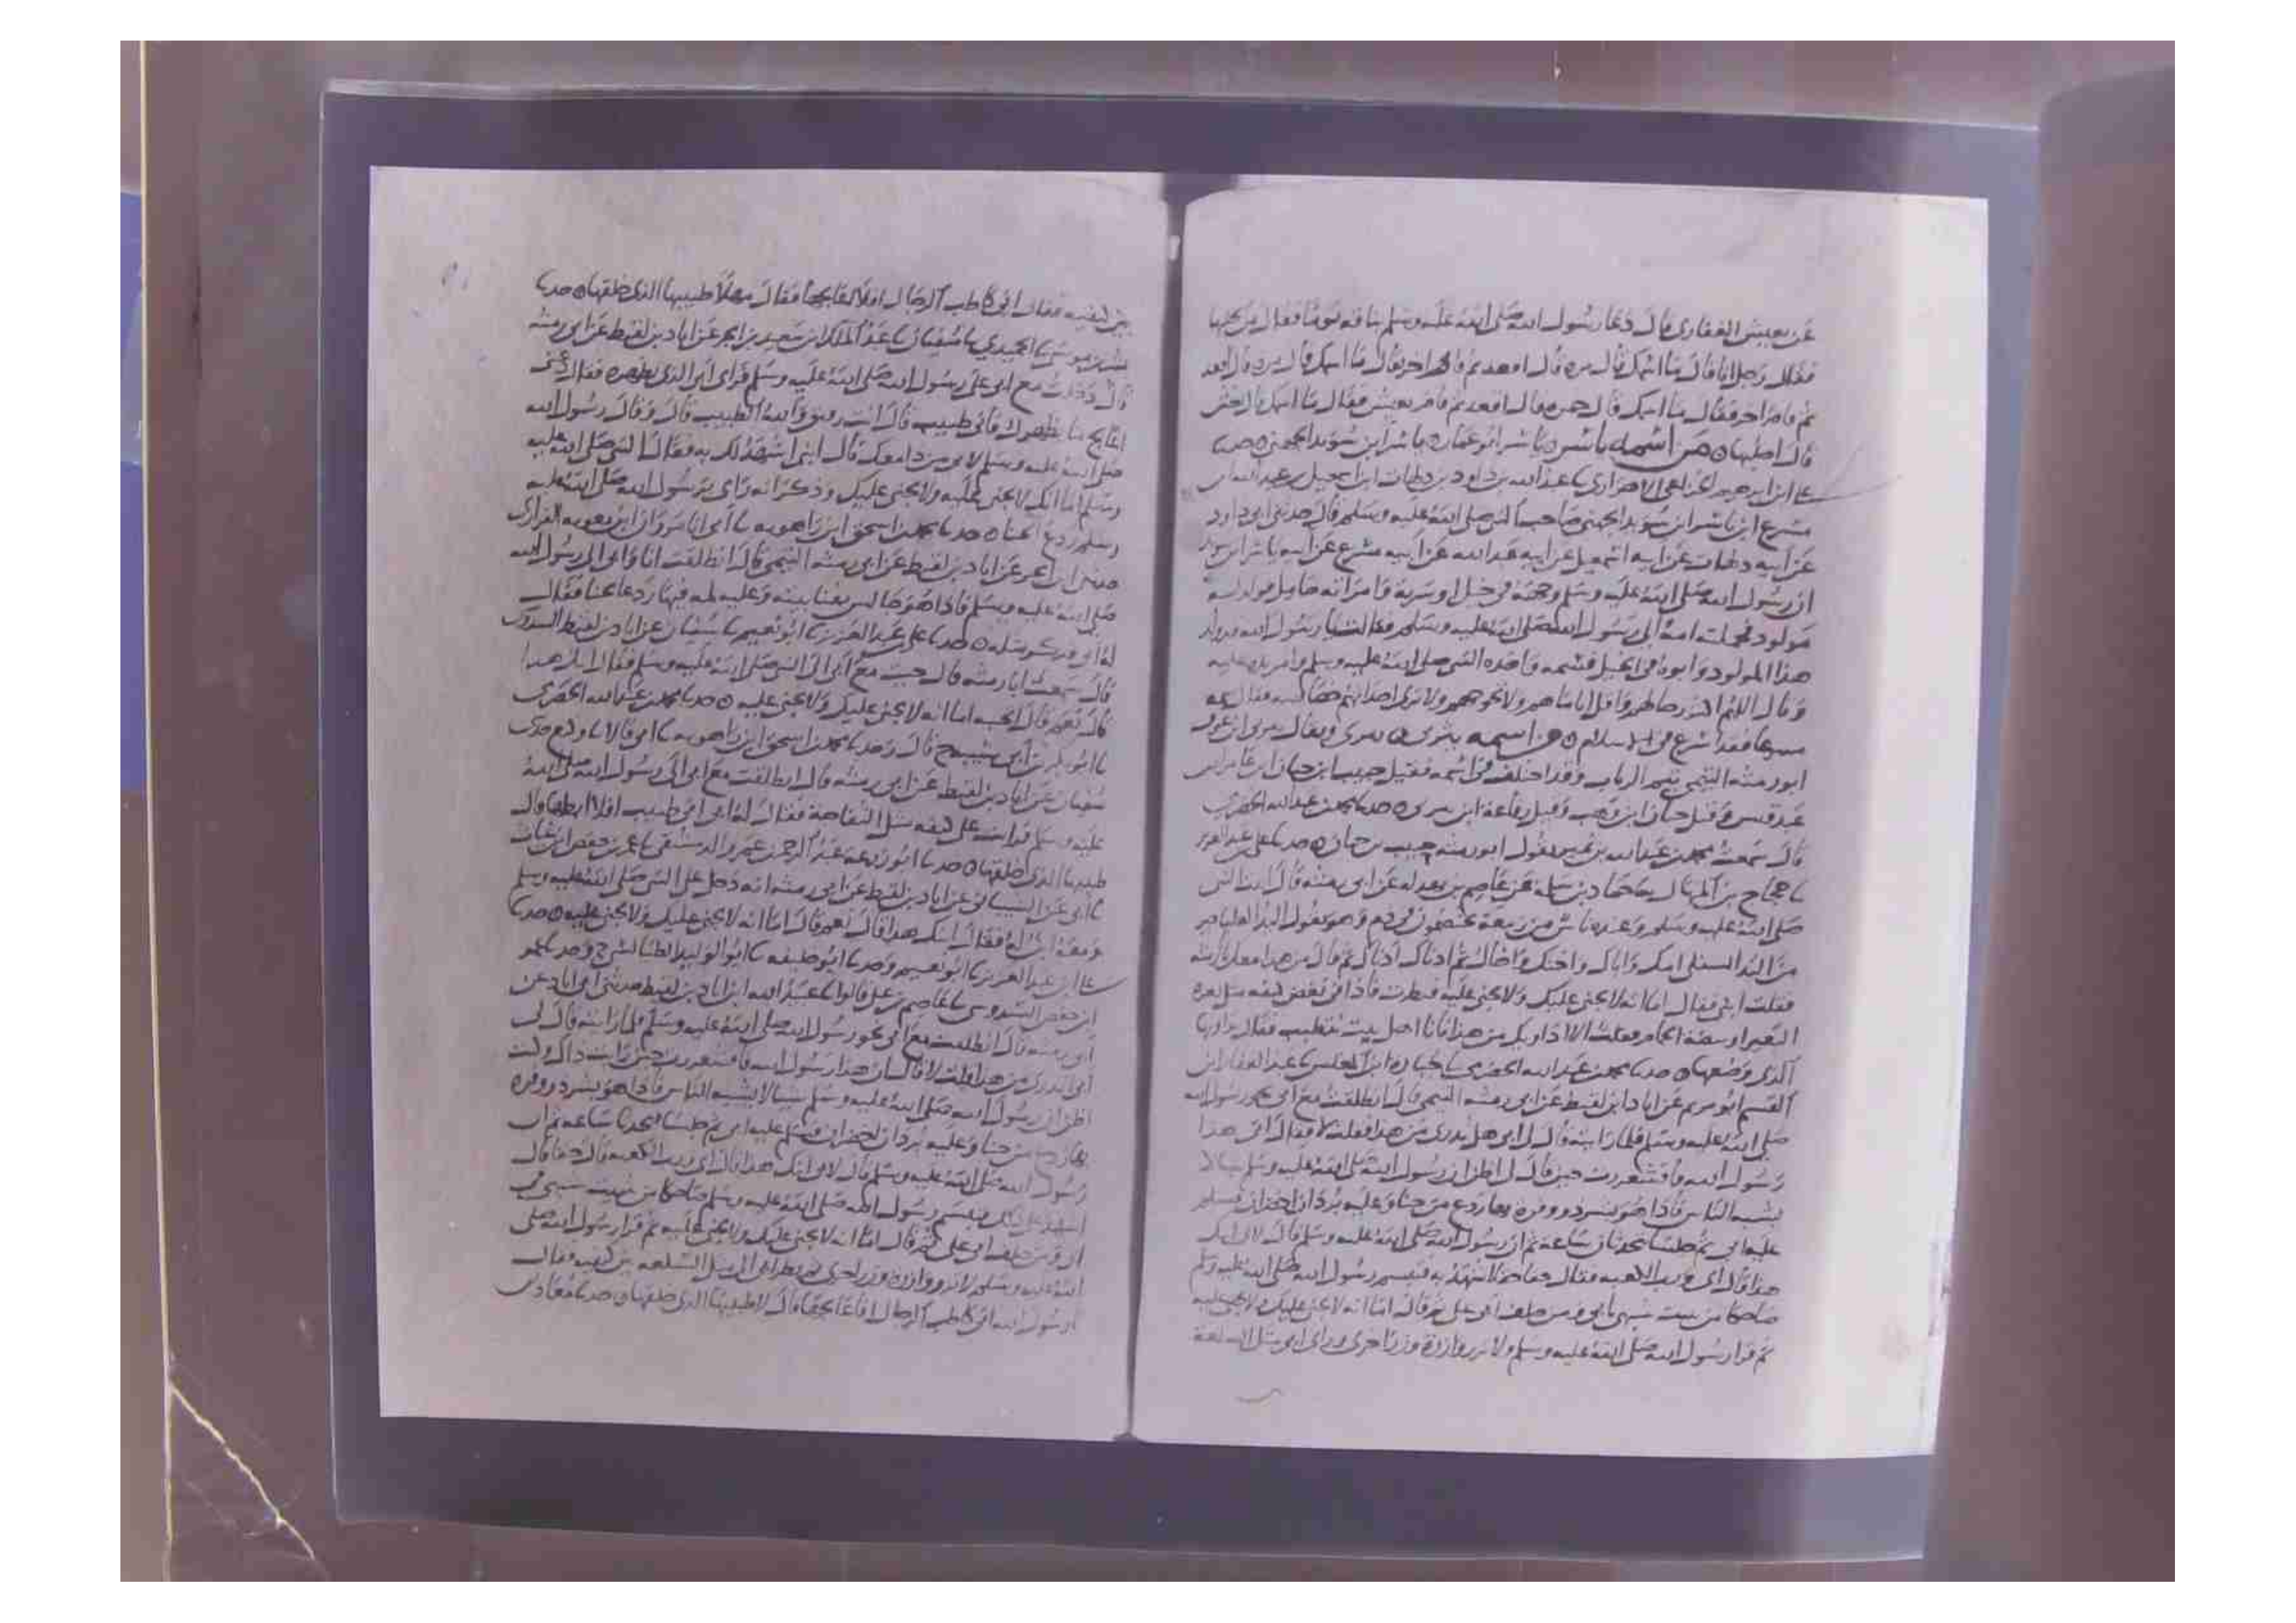 عن يعيش الغفاري قال دعا رسول الله صلى الله عليه وسلم بناقة يوما فقال من يحلبها
فقال رجل انا فقال ما اسمك قال مره قال اقعد ثم قام اخر فقال ما اسمك قال مره قال اقعد
ثم قام اخر فقال ما اسمك قال جمره قال اقعد ثم قام يعيش فقال ما اسمك قال يعيش
قال احلبها من اسمه ياسر ياسر ابو عمار ياسر ابن سويد الجهني حدثنا
علي ابن ابرهيم الخزاعي الاهوازي عبدالله بن داود بن دلهاث ابن اسمعيل بن عبدالله ابن
مسرع ابن ياسر ابن سويد الجهني صاحب النبي صلى الله عليه وسلم قال حدثني ابي داود
عن ابيه دلهاث عن ابيه اسمعيل عن ابيه عبدالله عن ابيه مسرع عن ابيه ياسر ابن سويد
ان رسول الله صلى الله عليه وسلم وجهه في خيل او سرية وامراته حامل فولد له
مولود فحملته امه الى رسول الله صلى الله عليه وسلم فقالت يا رسول الله قد ولد
هذا المولود وابوه في الخيل فسمه فاخذه النبي صلى الله عليه وسلم وامر يده عليه
وقال اللهم اكثر رجالهم واقل اياماهم ولا تحوجهم ولا ترى احدا بهم خصاصه فقال سمه
مسرعا فقد اسرع في الاسلام من اسمه يثربي يثربي ويقال يثربي ابن عوف
ابو رمثه التيمي تيم الرباب وقد اختلف في اسمه فقيل حبيب ابن حيان ابن عامر ابن
عبد قيس وقيل حيان ابن وهب وقيل رفاعة ابن يثربي حدثنا محمد بن عبدالله الحضرمي
قال سمعت محمد بن عبدالله بن نمير يقول ابو رمثه حبيب بن حيان حدثنا علي بن عبدالعزيز
نا حجاج بن المنهال نا حماد بن سلمه عن عاصم بن بهدله عن ابي رمثه قال اتيت النبي
صلى الله عليه وسلم وعنده ناس من ربيعة يختصمون في دم وهو يقول اليد العليا خير
من اليد السفلى امك واباك واختك واخاك ثم ادناك ادناك ثم قال من هذا معك يابا رمثه
فقلت ابني فقال اما انه لا يجني عليك ولا تجني عليه فنظرت فاذا في نغض كتفه مثل بعرة
البعير او بيضة الحمام فقلت الا اداويك من هذا فانا اهل بيت نتطبب فقال يداويها
الذي وضعها حدثنا محمد بن عبدالله الحضرمي نا جباره ابن المغلس نا عبد الغفار ابن
القسم ابو مريم عن اياد ابن لقيط عن ابي رمثه التيمي قال انطلقت مع ابي نحو رسول الله
صلى الله عليه وسلم فلما رايته قال لي ابي هل تدري من هذا فقلت لا فقال ابي هذا
رسول الله فاقشعررت حين قال لي اظن ان رسول الله صلى الله عليه وسلم شيا لا
يشبه الناس فاذا هو بشر ذو وفره بها ردع من حنا وعليه بردان اخضران فسلم
عليه ابي ثم جلسنا فتحدثنا ساعة ثم ان رسول الله صلى الله عليه وسلم قال لابي ابنك
هذا قال اي ورب الكعبه فقال حقا قال اشهد به فتبسم رسول الله صلى الله عليه وسلم
ضاحكا من ثبت شبهي بابي ومن حلف ابي علي ثم قال اما انه لا يجني عليك ولا تجني عليه
ثم قرا رسول الله صلى الله عليه وسلم ولا تزر وازرة وزر اخرى وراى ابي مثل السلعة
بين كتفيه فقال اني كاطب الرجال افلا اعالجها فقال مهلا طبيبها الذي خلقها حدثنا
بشر بن موسى نا الحميدي نا سفيان نا عبد الملك ابن سعيد بن ابجر عن اياد بن لقيط عن ابي رمثه
قال دخلت مع ابي على رسول الله صلى الله عليه وسلم فراى ابي الذي بظهره فقال دعني
اعالج ما بظهرك فاني طبيب قال انت رفيق والله الطبيب قال وقال رسول الله
صلى الله عليه وسلم لابي من ذا معك قال ابني اشهد لك به فقال النبي صلى الله عليه
وسلم اما انك لا تجني عليه ولا يجني عليك وذكر انه راى برسول الله صلى الله عليه
وسلم ردع الحنا حدثنا محمد ابن اسحق ابن راهويه نا ابي انا مروان ابن معويه الفزاري
حدثني ابن ابجر عن اياد بن لقيط عن ابي رمثه التيمي قال انطلقت انا وابي الى رسول الله
صلى الله عليه وسلم فاذا هو جالس بفنا بيته وعليه لمه فيها ردعا حنا فقال
له ابي فذكر مثله حدثنا علي بن عبد العزيز نا ابو نعيم نا سفيان عن اياد بن لقيط السدوسي
قال سمعت ابا رمثه قال جيت مع ابي الى النبي صلى الله عليه وسلم فقال ابنك هذا
قال نعم قال اتحبه اما انه لا يجني عليك ولا تجني عليه حدثنا محمد بن عبد الله الحضرمي
نا ابو بكر بن ابي شيبه ح قال وحدثنا محمد ابن اسحق ابن راهويه نا ابي قالا نا وكيع حدثني
سفيان عن اياد بن لقيط عن ابي رمثه قال انطلقت مع ابي الى رسول الله صلى الله
عليه وسلم فرايت على كتفه مثل التفاحة فقال له ابي اني طبيب افلا ابطها قال
طبيبها الذي خلقها حدثنا ابو زرعة عبد الرحمن بن عمرو الدمشقي نا عمر بن حفص ابن غياث
نا ابي عن الشيباني عن اياد بن لقيط عن ابي رمثه انه دخل على النبي صلى الله عليه وسلم
ومعه ابن له فقال ابنك هذا قال نعم قال اما انه لا يجني عليك ولا تجني عليه حدثنا
علي ابن عبد العزيز نا ابو نعيم وحدثنا ابو خليفه نا ابو الوليد الطيالسي ح وحدثنا عمر
ابن حفص السدوسي نا عاصم بن علي قالوا نا عبيد الله ابن اياد بن لقيط حدثني ابي اياد عن
ابي رمثه قال انطلقت مع ابي نحو رسول الله صلى الله عليه وسلم فلما رايته قال لي
ابي تدري من هذا قلت لا قال ان هذا رسول الله فاقشعررت حين رايت ذاك وكنت
اظن ان رسول الله صلى الله عليه وسلم شيا لا يشبه الناس فاذا هو بشر ذو وفره
بها ردع من حنا وعليه بردان اخضران فسلم عليه ابي ثم جلسنا فتحدثنا ساعه ثم ان
رسول الله صلى الله عليه وسلم قال لابي ابنك هذا قال اي ورب الكعبه قال حقا قال
اشهد به قال فتبسم رسول الله صلى الله عليه وسلم ضاحكا من ثبت شبهي في
ابي ومن حلف ابي علي ثم قال اما انه لا يجني عليك ولا تجني عليه ثم قرا رسول الله صلى
الله عليه وسلم لا تزر وازرة وزر اخرى ثم نظر ابي الى مثل السلعه بين كتفيه فقال
يا رسول الله اني كاطب الرجال افاعالجها قال لا طبيبها الذي خلقها حدثنا معاذ ابن